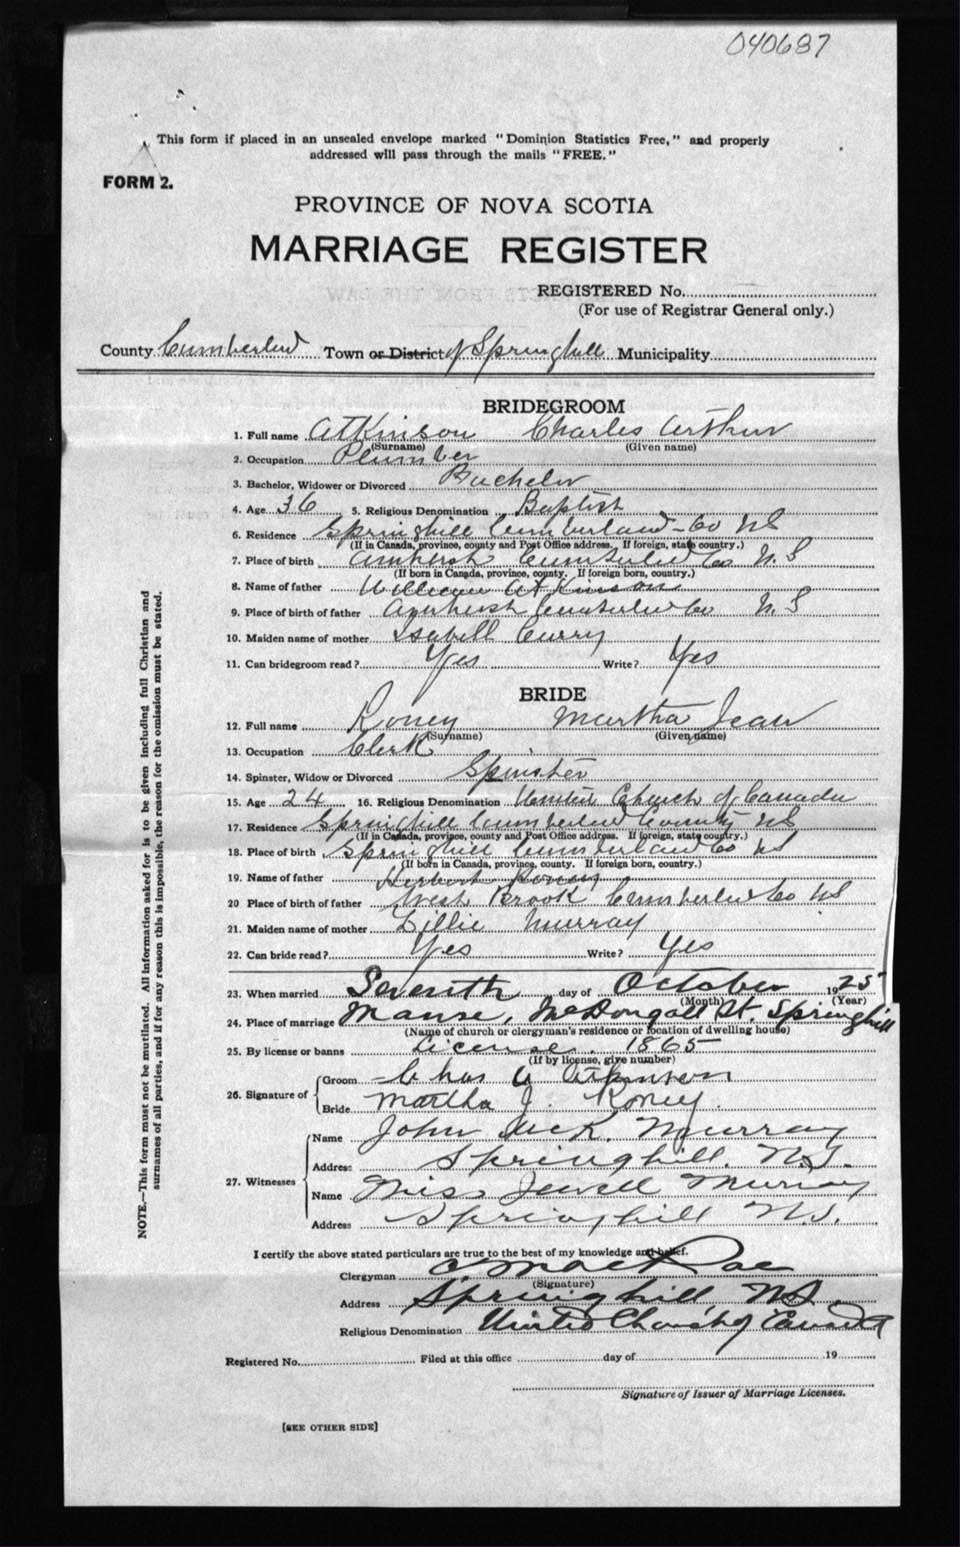 040687
This form if placed in an unsealed envelope marked "Dominion Statistics Free," and properly
addressed will pass through the mails "FREE."
FORM 2.
PROVINCE OF NOVA SCOTIA
MARRIAGE REGISTER
REGISTERED No.
(For use of Registrar General only.)
County Cumberland Town or District of Springhill Municipality
BRIDEGROOM
1. Full name Atkinson Charles Arthur
(Surname) (Given name)
2. Occupation Plumber
3. Bachelor, Widower or Divorced Bachelor
4. Age 36 5. Religious Denomination Baptist
6. Residence Springhill Cumberland Co NS
(If in Canada, province, county and Post Office address. If foreign, state country.)
7. Place of birth Amherst Cumberland Co N.S
(If born in Canada, province, county. If foreign born, country.)
8. Name of father William Atkinson
9. Place of birth of father Amherst Cumberland Co N.S
10. Maiden name of mother Isabell Curry
11. Can bridegroom read? Yes Write? Yes
BRIDE
12. Full name Roney Martha Jean
(Surname) (Given name)
13. Occupation Clerk
14. Spinster, Widow or Divorced Spinster
15. Age 24 16. Religious Denomination United Church of Canada
17. Residence Springhill Cumberland County NS
(If in Canada, province, county and Post Office address. If foreign, state country.)
18. Place of birth Springhill Cumberland Co NS
(If born in Canada, province, county. If foreign born, country.)
19. Name of father Herbert Roney
20 Place of father West Brook Cumberland Co NS
21. Maiden name of mother Lillie Murray
22. Can bride read? Yes Write? Yes
23. When married Seventh day of October 1925
(Month) (Year)
24. Place of marriage Manse, McDougall St. Springhill
(Name of church or clergyman's residence or location of dwelling house)
25. By license or banns License. 1865
(If by license, give number)
26. Signature of Groom Chas A Atkinson
Bride Martha J. Roney.
27. Witnesses Name John McK. Murray
Address Springhill. N.S.
Name Miss Jewell Murray
Address Springhill N.S.
I certify the above stated particulars are true to the best of my knowledge and belief.
Clergyman MacRae
(Signature)
Address Springhill, NS.
Religious Denomination United Church of Canada
Registered No. Filed at this office day of 19
Signature of Issuer of Marriage Licenses.
[SEE OTHER SIDE]
NOTE.—This form must not be mutilated. All information asked for is to be given including full Christian and
surnames of all parties, and if for any reason this is impossible, the reason for the omission must be stated.